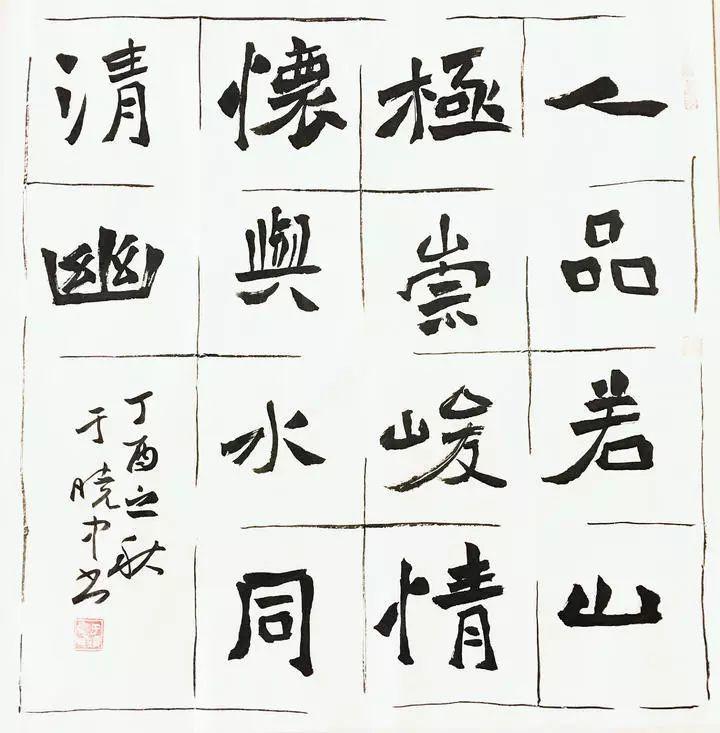 人品若山
極崇峻情
懷與水同
清幽
丁酉之秋
于曉中书